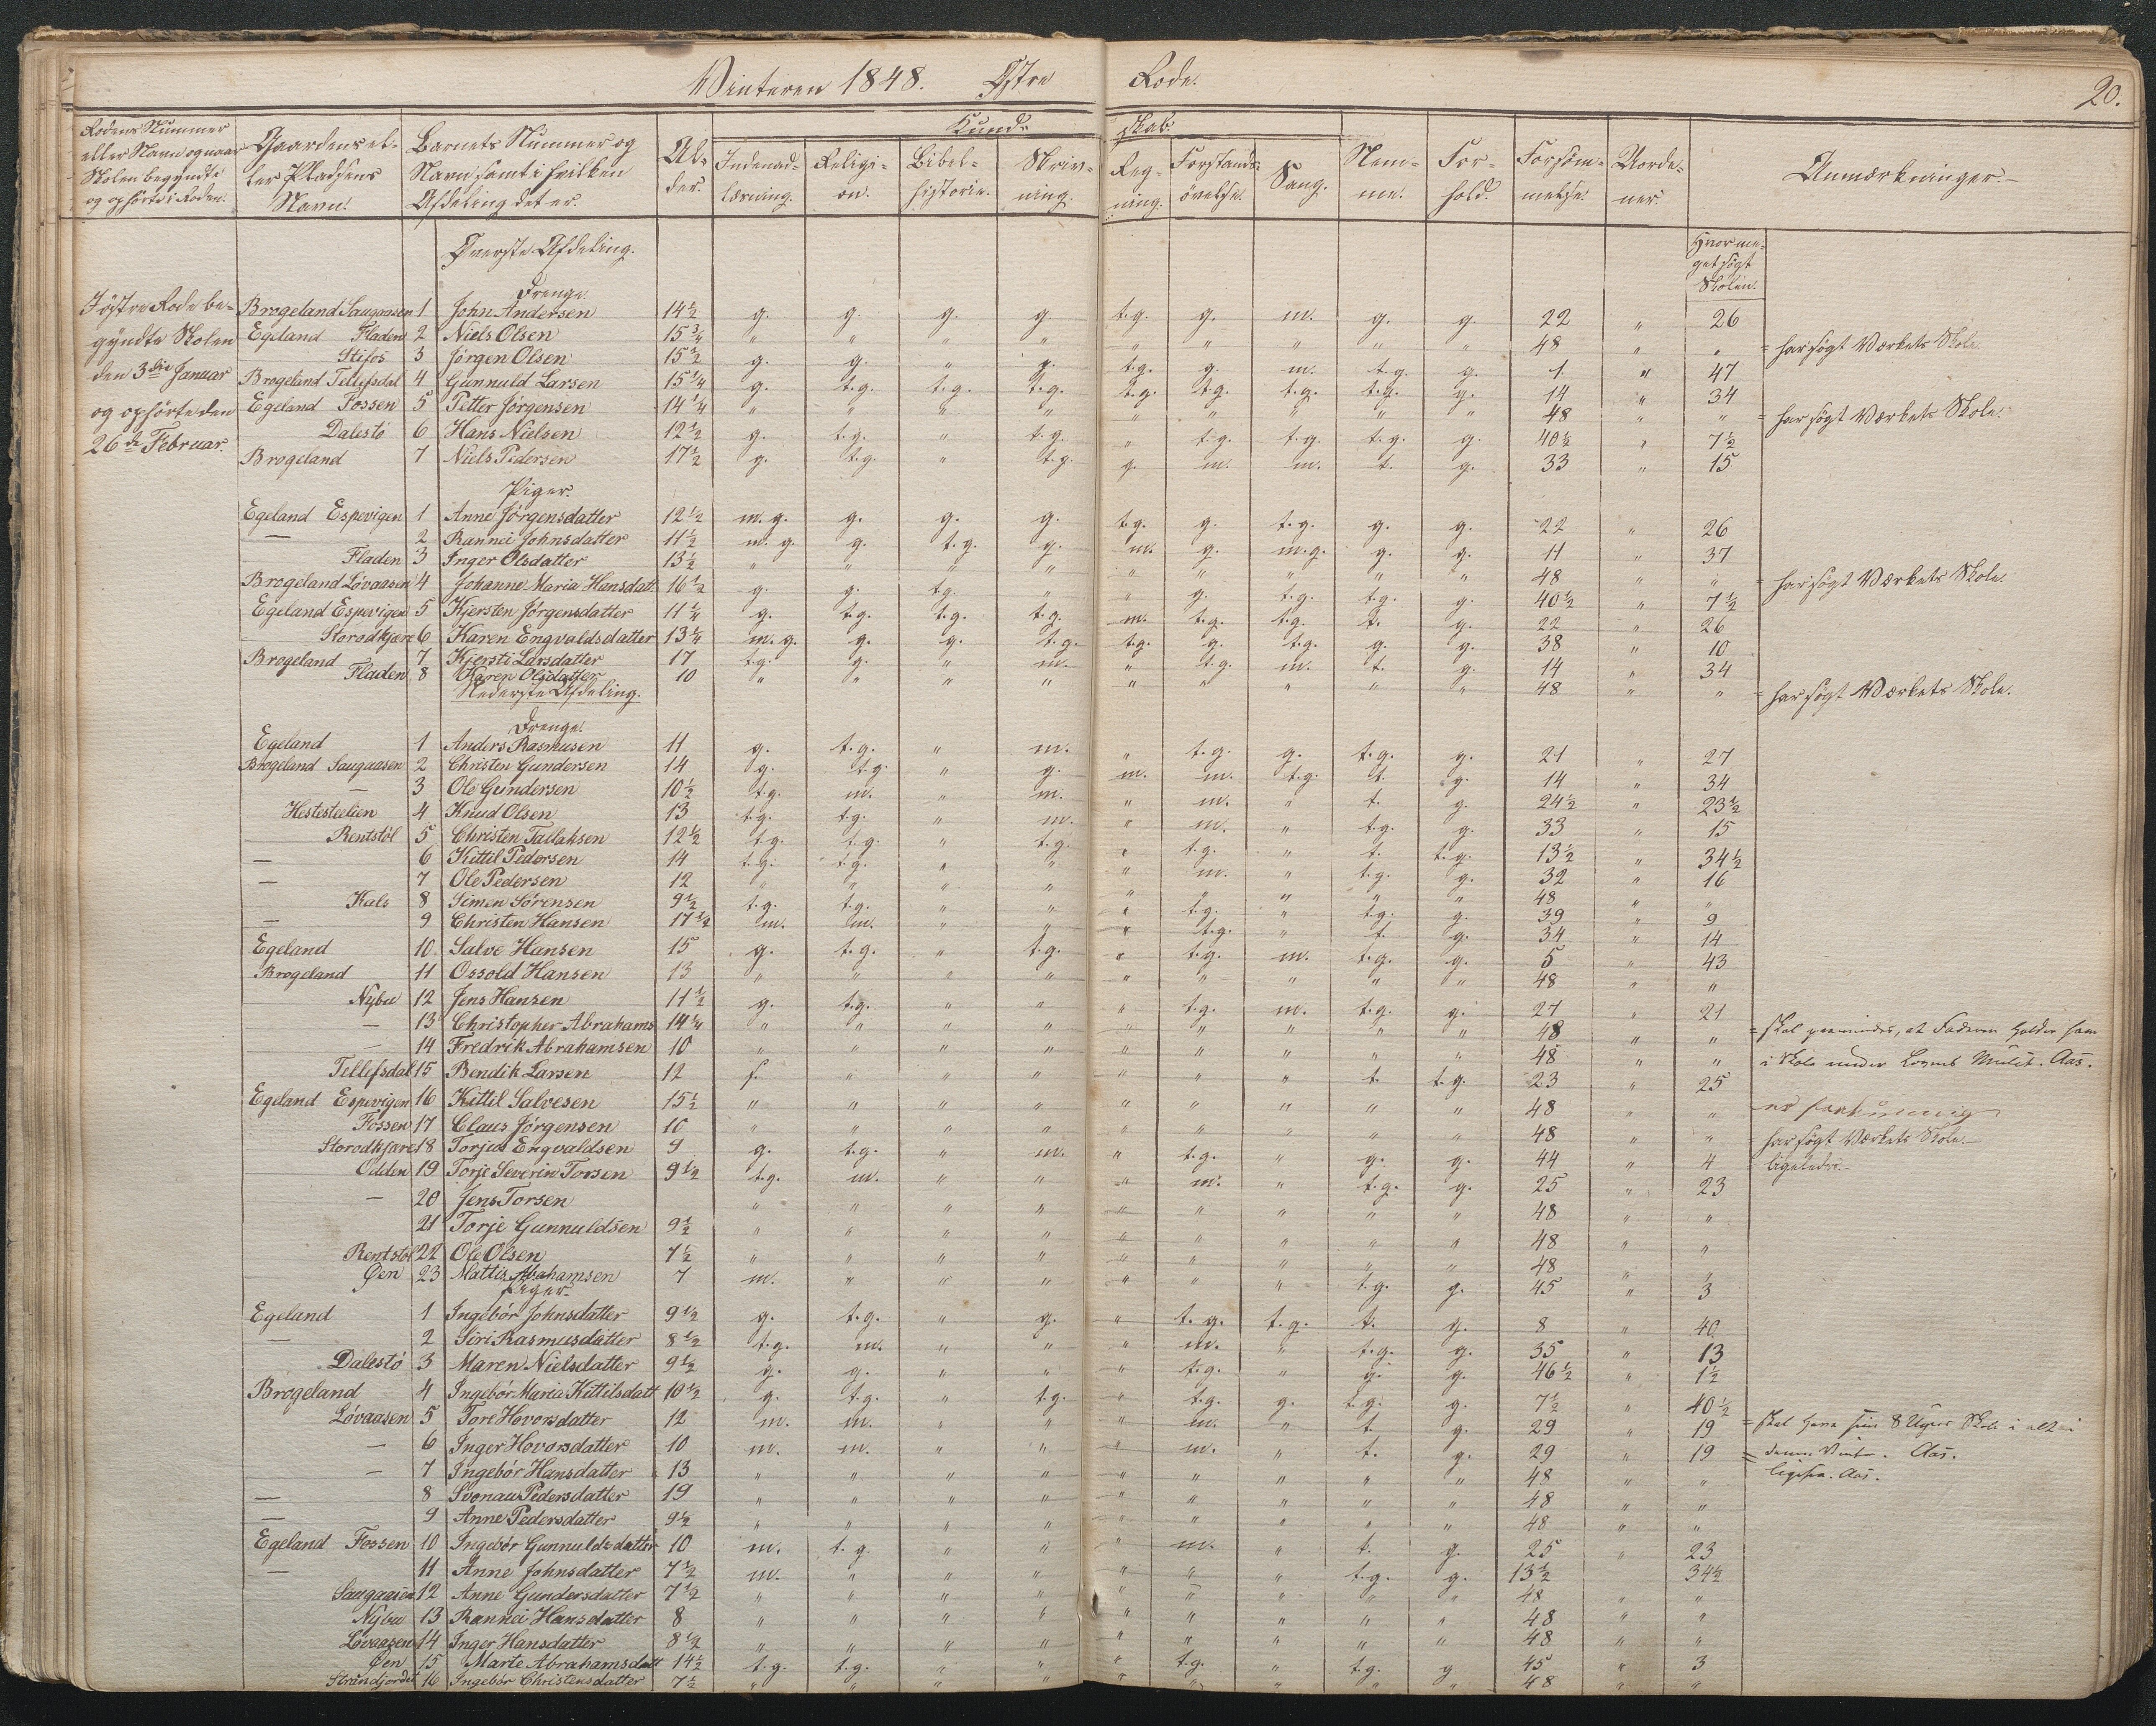 Vinteren 1848. Østre Rode. 20.
Rodens Nummer eller Navn og naar Skolen begyndte og ophørte i Roden. | Gaardens eller Pladsens Navn. | Barnets Nummer og Navn samt i hvilken Afdeling det er. | Alder. | Kundskab. | Indenadlæsning. | Religion. | Bibelhistorie. | Skrivning. | Regning. | Forstandsøvelse. | Sang. | Nemme. | Forhold. | Forsømmelse. | Uordener. | Anmærkninger.
Hvor meget søgt Skolen.
I østre Rode begyndte Skolen den 3die Januar og ophørte den 26de Februar.
Øverste Afdeling.
Drenge.
Brogeland Saugaasen 1 John Andersen 14½ g. g. g. g. t.g. g. m. g. g. 22 " 26
Egeland Fladen 2 Niels Olsen 15¾ " " " " " " " " " 48 " " = har søgt Værkets Skole.
Stifos 3 Jørgen Olsen 15½ g. g. " g. t.g. g. m. t.g. g. 1 " 47
Brogeland Tellefsdal 4 Gunnuld Larsen 15¼ g. t.g. t.g. t.g. t.g. t.g. t.g. t.g. g. 14 " 34
Egeland Fossen 5 Petter Jørgensen 14¼ " " " " " " " " " 48 " " = har søgt Værkets Skole.
Dalestø 6 Hans Nielsen 12½ g. t.g. " t.g. " t.g. t.g. t.g. g. 40½ " 7½
Brogeland 7 Niels Pedersen 17½ g. t.g. " t.g. g. m. m. t. g. 33 " 15
Piger.
Egeland Espevigen 1 Anne Jørgensdatter 12½ m.g. g. g. g. t.g. g. t.g. g. g. 22 " 26
— 2 Rannei Johnsdatter 11½ m.g. g. t.g. g. m. g. m.g. g. g. 11 " 37
Fladen 3 Inger Olsdatter 13½ " " " " " " " " " 48 " " = har søgt Værkets Skole.
Brogeland Løvaasen 4 Johanne Maria Hansdatt. 16½ g. g. t.g. " " g. t.g. t.g. g. 40½ " 7½
Egeland Espevigen 5 Kjersten Jørgensdatter 11¼ g. t.g. t.g. t.g. m. t.g. t.g. t. g. 22 " 26
Storodkjær 6 Karen Engvaldsdatter 13¼ m.g. g. g. t.g. t.g. g. t.g. g. g. 38 " 10
Brogeland 7 Kjersti Larsdatter 17 t.g. g. " m. " t.g. m. t. g. 14 " 34
Fladen 8 Karen Olsdatter 10 " " " " " " " " " 48 " " = har søgt Værkets Skole.
Nederste Afdeling.
Drenge.
Egeland 1 Anders Rasmusen 11 g. t.g. " m. " t.g. g. t.g. g. 21 " 27
Brogeland Saugaasen 2 Christen Gundersen 14 g. t.g. " g. m. m. t.g. t. g. 14 " 34
— 3 Ole Gundersen 10½ t.g. m. " m. " m. " t. g. 24½ " 23½
Hestesteelien 4 Knud Olsen 13 t.g. t.g. " m. " m. " t.g. g. 33 " 15
Rentstøl 5 Christen Tallaksen 12½ t.g. t.g. " t.g. " t.g. " t. t.g. 13½ " 34½
— 6 Kittil Pedersen 14 t.g. t.g. " " " m. " t.g. g. 32 " 16
— 7 Ole Pedersen 12 " " " " " " " " " 48 " "
Kals 8 Simen Sørensen 9½ t.g. t.g. " " " t.g. " t.g. g. 39 " 9
— 9 Christen Hansen 17½ m. m. " " " t.g. " t. g. 34 " 14
Egeland 10 Salve Hansen 15 g. t.g. " t.g. " t.g. m. t.g. g. 5 " 43
Brogeland 11 Ossold Hansen 13 " " " " " " " " " 48 " "
Nybu 12 Jens Hansen 11½ g. t.g. " " " t.g. m. t.g. g. 27 " 21
— 13 Christopher Abrahams 14¼ " " " " " " " " " 48 " "
— 14 Fredrik Abrahamsen 10 " " " " " " " " " 48 " "
Tellefsdal 15 Bendik Larsen 12 s. " " " " " " t. t.g. 23 " 25
Egeland Espevigen 16 Kittil Salvesen 15½ " " " " " " " " " 48 " "
Fossen 17 Claus Jørgensen 10 " " " " " " " " " 48 " " har søgt Værkets Skole.
Storodkjære 18 Torjus Engvaldsen 9 g. t.g. " m. " t.g. " g. g. 44 " 4 = ligeledes.
Odden 19 Torje Severin Torsen 9½ t.g. m. " " " m. " t.g. g. 25 " 23
— 20 Jens Torsen " " " " " " " " " 48 " "
21 Torje Gunnuldsen 9½ " " " " " " " " " 48 " "
Rentstøl 22 Ole Olsen 7½ " " " " " " " " " 48 " "
Øen 23 Mattis Abahamsen 7 m. " " " " " " t.g. g. 45 " 3
Piger.
Egeland 1 Ingebór Johnsdatter 9½ g. t.g. " g. " t.g. t.g. t. g. 8 " 40
— 2 Siri Rasmusdatter 8½ t.g. m. " " " m. " t.g. g. 35 " 13
Dalestø 3 Maren Nielsdatter 9½ g. g. " " " t.g. " g. g. 46½ " 1½
Brogeland 4 Ingebór Maria Kittilsdatt 10½ g. t.g. " t.g. " t.g. g. t.g. g. 7½ " 40½
Løvaasen 5 Tore Hovorsdatter 12 m. m. " " " m. " t. g. 29 " 19 = skal have sine 8 Uger Skole i alt i
— 6 Inger Hovorsdatter 10 m. m. " " " m. " t. g. 29 " 19 = denne Vint. Aas.
— 7 Ingebór Hansdatter 13 " " " " " " " " " 48 " " ligesaa. Aas.
— 8 Svonau Pedersdatter 19 " " " " " " " " " 48 " "
— 9 Anne Pedersdatter 9½ " " " " " " " " " 48 " "
Egeland Fossen 10 Ingebór Gunnuldsdatter 10 m. t.g. " " " m. " t. g. 25 " 23
— 11 Anne Johnsdatter 7½ m. " " " " " " t.g. g. 13½ 34½
Saugaasen 12 Anne Gundersdatter 7½ " " " " " " " " " 48 " "
Nybu 13 Rannei Hansdatter 8 " " " " " " " " " 48 " "
Løvaasen 14 Inger Hansdatter 8½ " " " " " " " " " 48 " "
Øen 15 Marte Abrahamsdatt 14½ t.g. t.g. " " " t.g. " t.g. g 45 " 3
Strandjordet 16 Ingebór Christensdatter 7½ " " " " " " " " " 48 " "